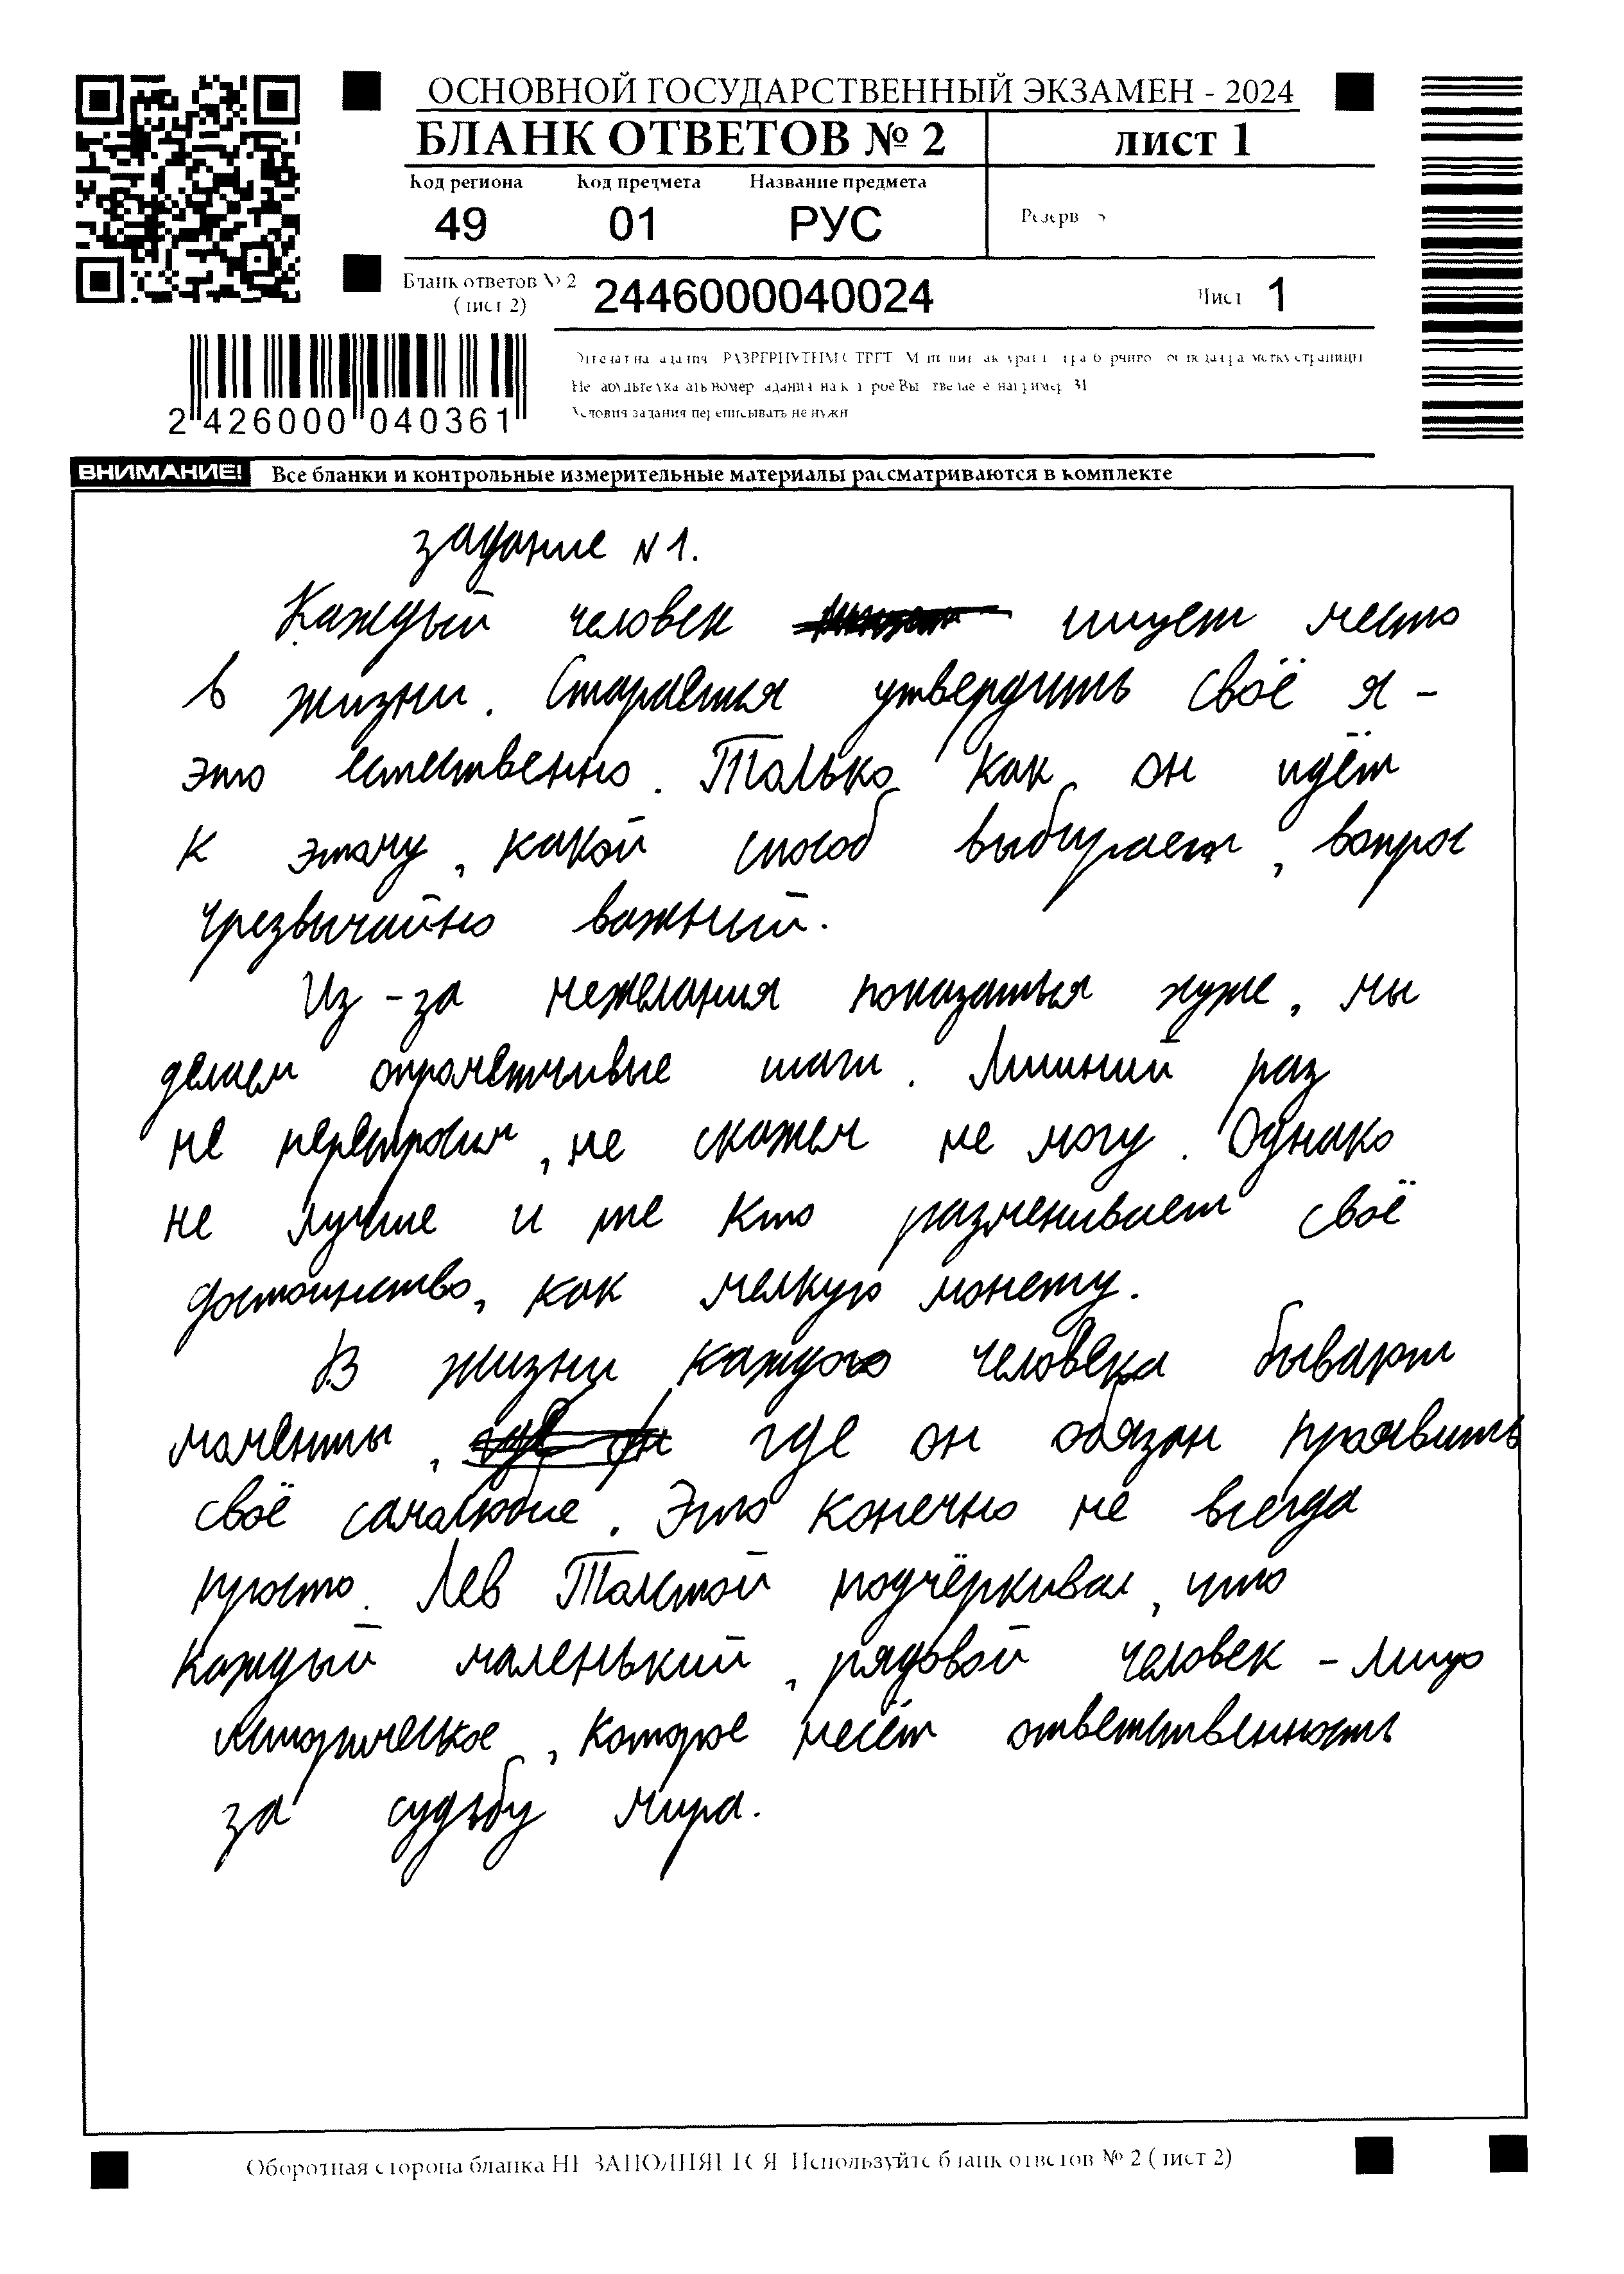 ОСНОВНОЙ ГОСУДАРСТВЕННЫЙ ЭКЗАМЕН - 2024
БЛАНК ОТВЕТОВ № 2
лист 1
Код региона Код предмета Название предмета
Резерв
49 01 РУС
Бланк ответов № 2
(лист 2)
2446000040024
Лист 1
2 426000 040361
Условия задания переписывать не нужн
ВНИМАНИЕ! Все бланки и контрольные измерительные материалы рассматриваются в комплекте
задание N 1.
Каждый человек ищет место
в жизни. Старается утвердить своё я -
это естественно. Только как он идёт
к этому, какой способ выбирает, вопрос
чрезвычайно важный.
Из-за нежелания показаться хуже, мы
делаем опрометчивые шаги. Лишний раз
не переспросим, не скажем не могу. Однако
не лучше и те кто разменивает своё
достоинство, как мелкую монету.
В жизни каждого человека бывают
моменты, где он обязан проявить
своё самолюбие. Это конечно не всегда
просто. Лев Толстой подчёркивал, что
каждый маленький, рядовой человек - лицо
историческое, которое несёт ответственность
за судьбу мира.
Оборотная сторона бланка НЕ ЗАПОЛНЯЕТСЯ Используйте бланк ответов № 2 (лист 2)